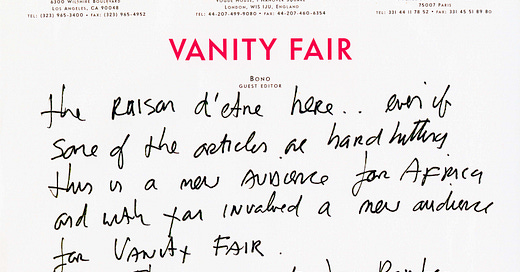 6300 WILSHIRE BOULEVARD
LOS ANGELES, CA 90048
TEL: (323) 965-3400 • FAX: (323) 965-4952
LONDON, W1S 1JU, ENGLAND
TEL: 44-207-499-9080 • FAX: 44-207-460-6354
75007 PARIS
TEL: 331 44 11 78 52 • FAX: 331 45 51 89 80
VANITY FAIR
BONO
GUEST EDITOR
the RAISON d'etre here.. even if
some of the articles are hard hitting
this is a new AUDIENCE for AFRICA
and with you INVOLVED a new audience
for VANITY FAIR.